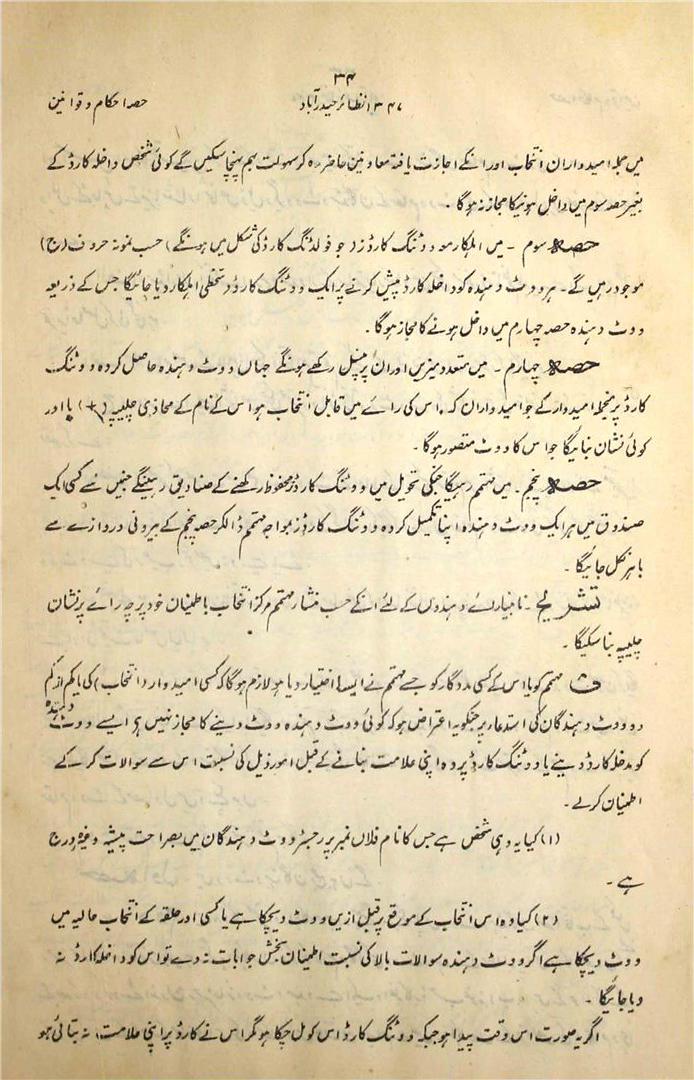 ۳۴
۱۳۴۷ نظائر حیدرآباد
حصہ احکام و قوانین
میں جملہ امیدواران انتخاب اور انکے اجازت یافتہ معاونین حاضر رہ کر سہولت بہم پہنچا سکیں گے کوئی شخص داخلہ کارڈ کے
بغیر حصہ سوم میں داخل ہونیکا مجاز نہ ہوگا ۔
حصہ سوم ۔ میں اہلکار معہ ووٹنگ کارڈز (جو فولڈنگ کارڈ کی شکل میں ہونگے) حسب نمونہ حروف (ج)
موجود رہیں گے ۔ ہر ووٹ دہندہ کو داخلہ کارڈ پیش کرنے پر ایک ووٹنگ کارڈ دستخطی اہلکار دیا جائیگا جس کے ذریعہ
ووٹ دہندہ حصہ چہارم میں داخل ہونے کا مجاز ہوگا ۔
حصہ چہارم ۔ میں متعدد میزیں اور ان پر پنسل رکھے ہونگے جہاں ووٹ دہندہ حاصل کردہ ووٹنگ
کارڈ پر منجملہ امیدوار کے جو امیدواران کہ اس کی رائے میں قابل انتخاب ہو اس کے نام کے محاذی چلیپہ (+) یا اور
کوئی نشان بنائیگا جو اس کا ووٹ متصور ہوگا ۔
حصہ پنجم ۔ میں مہتمم رہیگا جنکی تحویل میں ووٹنگ کارڈز محفوظ رکھنے کے صنادیق رہینگے جنمیں سے کسی ایک
صندوق میں ہر ایک ووٹ دہندہ اپنا تکمیل کردہ ووٹنگ کارڈ بمواجہ مہتمم ڈالکر حصہ پنجم کے بیرونی دروازے سے
باہر نکل جائیگا ۔
تشریح ۔ نابینا رائے دہندوں کے لئے انکے حسب منشار مہتمم مرکز انتخاب باطمینان خود پرچہ رائے پر نشان
چلیپہ بنا سکیگا ۔
ف مہتمم کو یا اس کے کسی مددگار کو جسے مہتمم نے ایسا اختیار دیا ہو لازم ہوگا کہ کسی امیدوار (انتخاب) کی یا کم از کم
دو ووٹ دہندگان کی استدعار پر جنکو یہ اعتراض ہو کہ کوئی ووٹ دہندہ ووٹ دینے کا مجاز نہیں ہے ایسے ووٹ دہندہ
کو مدخلہ کارڈ دینے یا ووٹنگ کارڈ پر وہ اپنی علامت بنانے کے قبل امور ذیل کی نسبت اس سے سوالات کر کے
اطمینان کرلے ۔
(۱) کیا یہ وہی شخص ہے جس کا نام فلاں نمبر پر رجسٹر ووٹ دہندگان میں بصراحت پیشہ وغیرہ درج
ہے ۔
(۲) کیا وہ اس انتخاب کے موقع پر قبل ازیں ووٹ دیچکا ہے یا کسی اور حلقہ کے انتخاب حالیہ میں
ووٹ دیچکا ہے اگر ووٹ دہندہ سوالات بالا کی نسبت اطمینان بخش جوابات نہ دے تو اس کو داخلہ کارڈ نہ
دیا جائیگا ۔
اگر یہ صورت اس وقت پیدا ہو جبکہ ووٹنگ کارڈ اس کو مل چکا ہو مگر اس نے کارڈ پر اپنی علامت نہ بنائی ہو